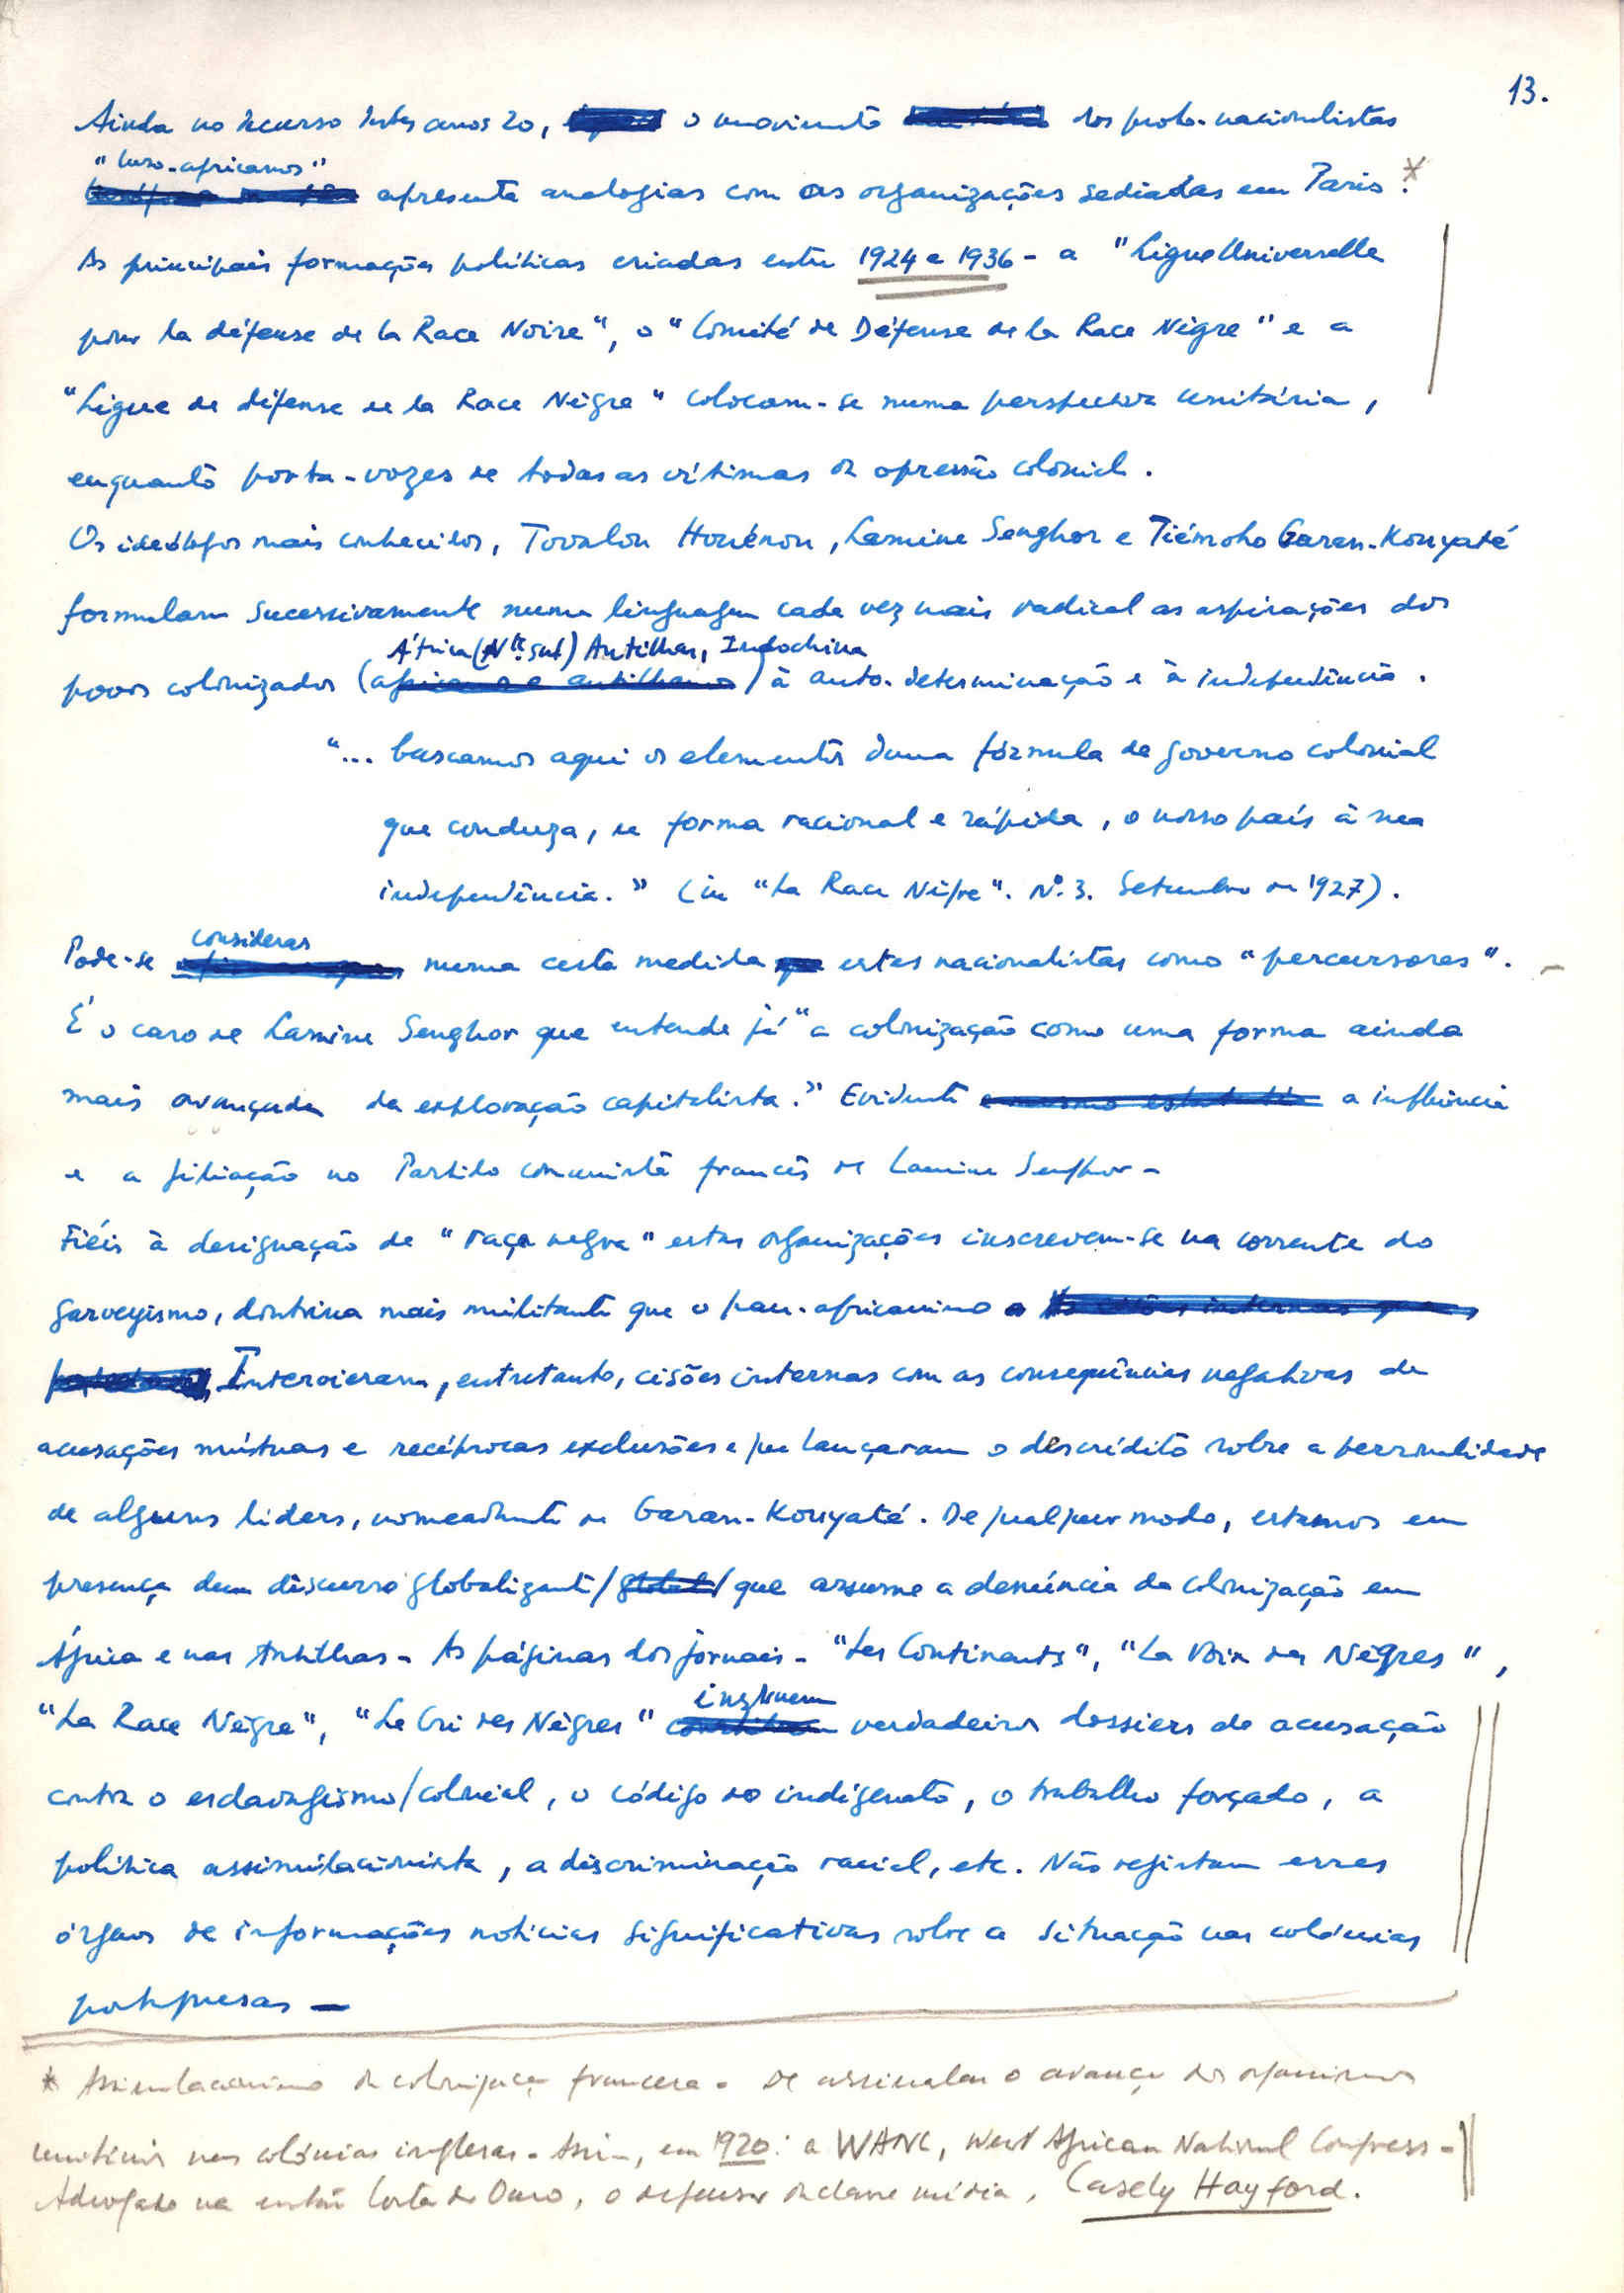 13.
Ainda no decurso destes anos 20, o movimento dos proto-nacionalistas
"luso-africanos"
apresenta analogias com as organizações sediadas em Paris.*
As principais formações políticas criadas entre 1924 e 1936 - a "Ligue Universelle
pour la défense de la Race Noire", o "Comité de Défense de la Race Nègre" e a
"Ligue de défense de la Race Nègre" colocam-se numa perspectiva unitária,
enquanto porta-vozes de todas as vítimas da opressão colonial.
Os ideólogos mais conhecidos, Tovalou Houénou, Lamine Senghor e Tiémoho Garan-Kouyaté
formulam sucessivamente numa linguagem cada vez mais radical as aspirações dos
África (Nte. Sul) Antilhas, Indochina
povos colonizados (africanos e antilhanos) à auto-determinação e à independência.
"... buscamos aqui os elementos duma fórmula de governo colonial
que conduza, de forma racional e rápida, o nosso país à sua
independência." (in "La Race Nègre". Nº 3. Setembro de 1927).
considerar
Pode-se numa certa medida estes nacionalistas como "percursores".
É o caso de Lamine Senghor que entende já "a colonização como uma forma ainda
mais avançada da exploração capitalista." Evidente a influência
e a filiação no Partido comunista francês de Lamine Senghor -
Fiéis à designação de "raça negra" estas organizações inscrevem-se na corrente do
garveyismo, doutrina mais militante que o pan-africanismo
Intervieram, entretanto, cisões internas com as consequências negativas de
acusações mútuas e recíprocas exclusões e que lançaram o descrédito sobre a personalidade
de alguns líders, nomeadamente de Garan-Kouyaté. De qualquer modo, estamos em
presença dum discurso globalizante/global/ que assume a denúncia da colonização em
África e nas Antilhas - As páginas dos jornais - "Les Continents", "La Voix des Nègres",
instruem
"La Race Nègre", "Le Cri des Nègres" verdadeiros dossiers de acusação
contra o esclavagismo/colonial, o código do indigenato, o trabalho forçado, a
política assimilacionista, a discriminação racial, etc. Não registam esses
órgãos de informações notícias significativas sobre a situação nas colónias
portuguesas -
* Assimilacionismo da colonização francesa. De assinalar o avanço dos organismos
unitários nas colónias inglesas - Assim, em 1920: a WANC, West African National Congress -
Advogado na então Costa do Ouro, o defensor da classe média, Casely Hayford.